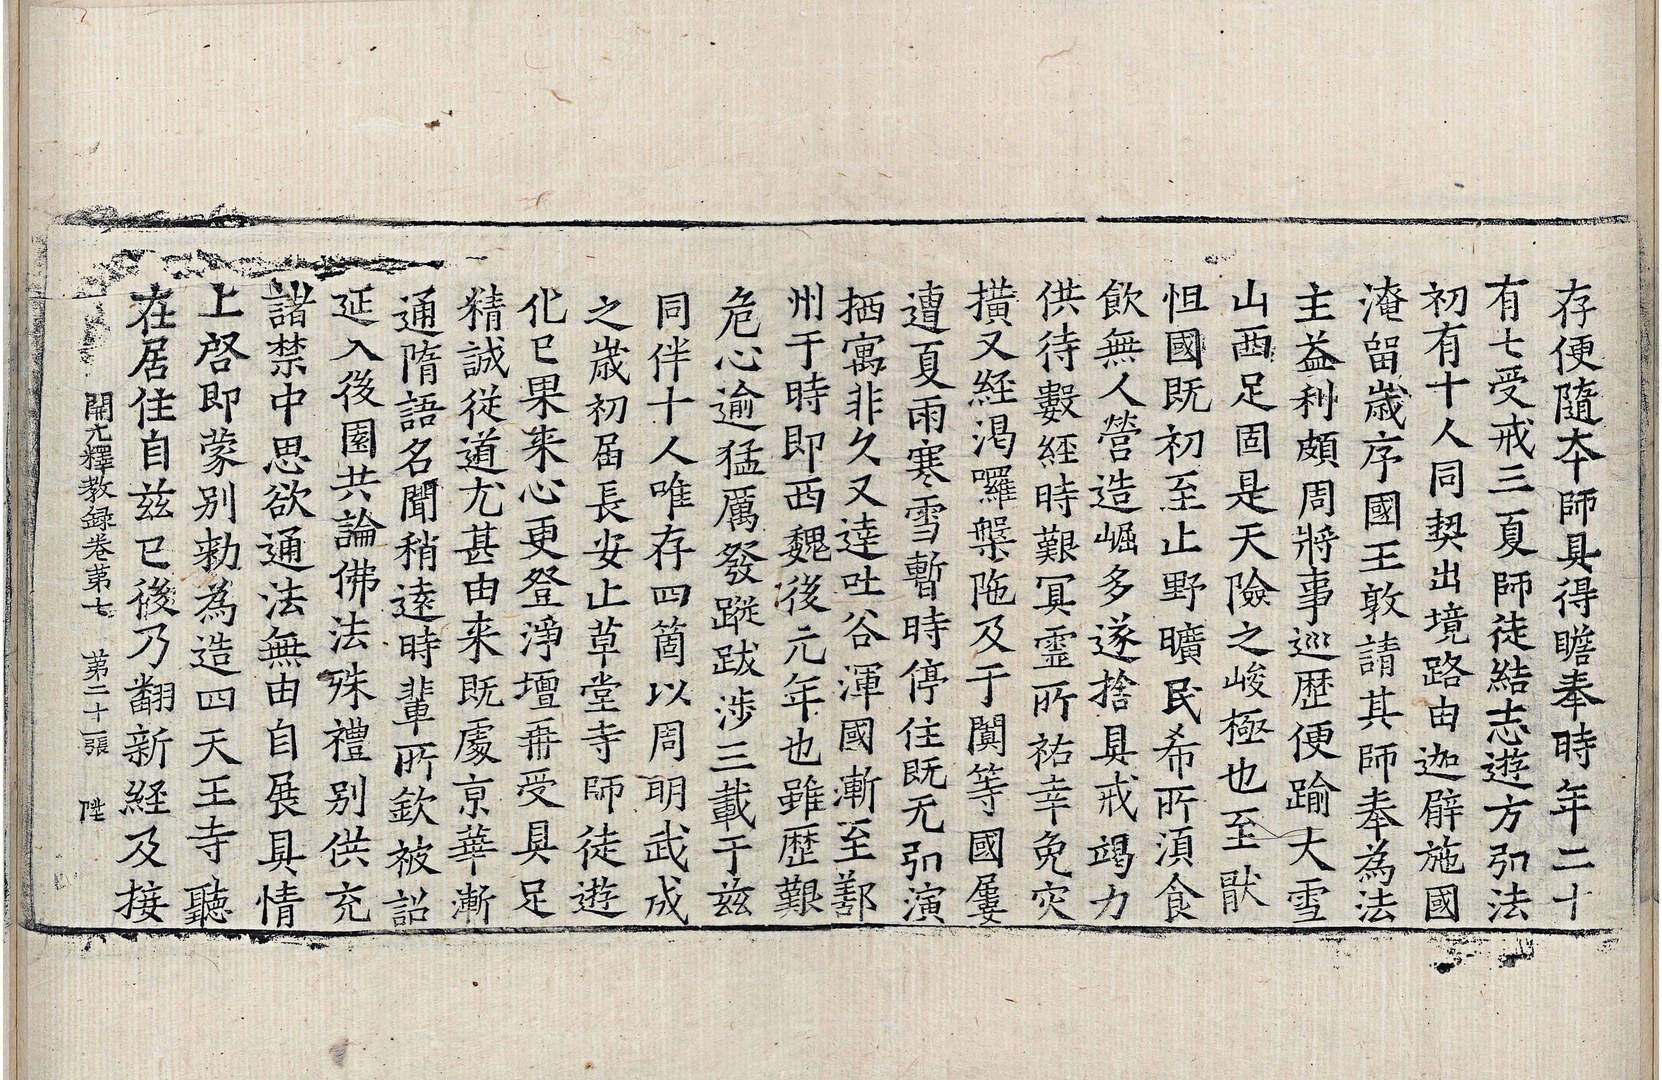 存便隨夲師具得瞻奉時年二十
有七受戒三夏師徒結志遊方弘法
初有十人同契出境路由迦臂施國
淹留歲序國王敦請其師奉為法
主益利頗周將事巡歷便踰大雪
山西足固是天險之峻極也至猒
怛國既初至止野曠民希所須食
飲無人營造崛多遂捨具戒竭力
供待數經時艱冥霊所祐幸免灾
撗又経渇囉槃陁及于闐等國屢
遭夏雨寒雪暫時停住既无弘演
栖寓非久又達吐谷渾國漸至鄯
州于時即西魏後元年也雖歷艱
危心逾猛厲發蹤跋涉三載于兹
同伴十人唯存四箇以周明武成
之歲初届長安止草堂寺師徒遊
化已果来心更登淨壇冊受具足
精誠従道尤甚由来既處京華漸
通隋語名聞稍遠時輩所欽被詔
延入後園共論佛法殊禮別供充
諸禁中思欲通法無由自展具情
上啓即蒙別勑為造四天王寺聽
在居住自兹已後乃翻新経及接
開元釋教録卷第七 第二十二張 陞